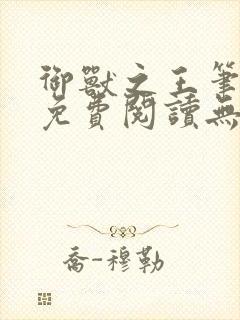 御獸之王筆
免費閱讀無
喬-穆勒